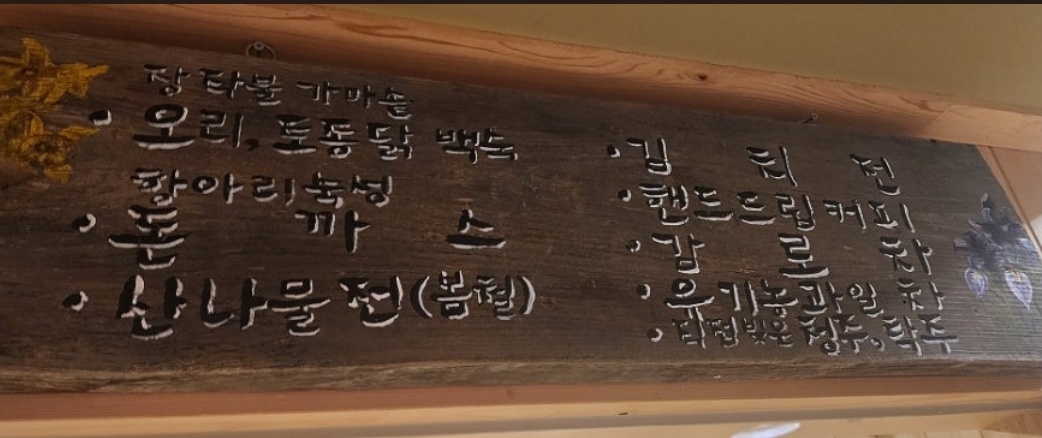 장작불 가마솥
오리, 토종닭 백숙
항아리숙성
돈까스
산나물전(봄철)
김치전
핸드드립커피
감로차
유기농과일차
직접빚은 청주, 탁주